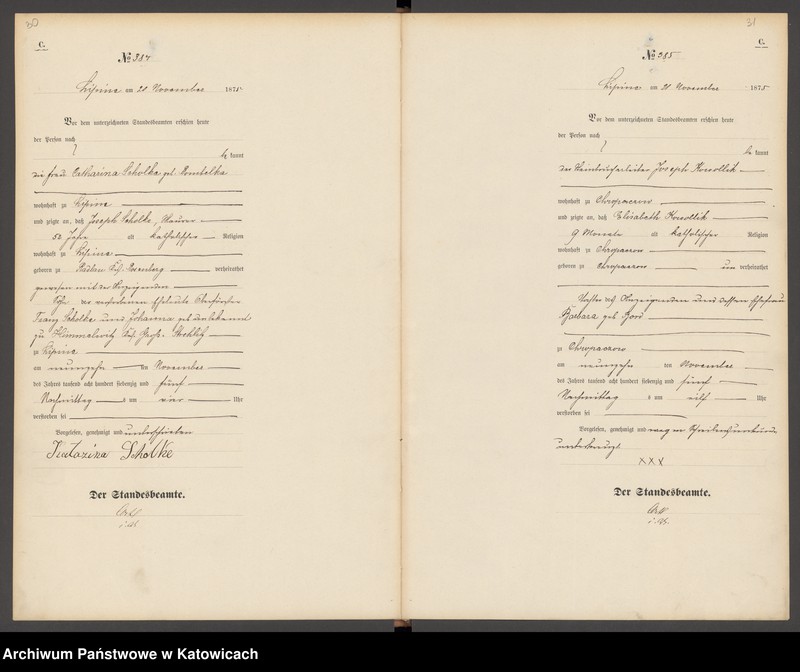 30
C.
№ 384
Lipine am 20 November 1875
Vor dem unterzeichneten Standesbeamten erschien heute
der Person nach
be kannt
die Frau Catharina Scholke geb.
wohnhaft zu Lipine
und zeigte an, daß Joseph Scholke, Maurer
52 Jahre alt katholischer Religion
wohnhaft zu Lipine
geboren zu Rosenberg verheirathet
gewesen mit der Anzeigenden
Sohn des verstorbenen Eheleute
Franz Scholke und Johanna geb. unbekannt
zu Himmelwitz Groß Strehlitz
zu Lipine
am neunzehn ten November
des Jahres tausend acht hundert siebenzig und fünf
Nachmittag s um vier Uhr
verstorben sei
Vorgelesen, genehmigt und unterschrieben
Katarina Scholke
Der Standesbeamte.
31
C.
№ 385
Lipine am 20 November 1875
Vor dem unterzeichneten Standesbeamten erschien heute
der Person nach
be kannt
der Steinbrucharbeiter Joseph Kowollik
wohnhaft zu Chropaczow
und zeigte an, daß Elisabeth Kowollik
9 Monate alt katholischer Religion
wohnhaft zu Chropaczow
geboren zu Chropaczow un verheirathet
Tochter des Anzeigenden und dessen Ehefrau
Barbara geb.
zu Chropaczow
am neunzehn ten November
des Jahres tausend acht hundert siebenzig und fünf
Nachmittag s um eilf Uhr
verstorben sei
Vorgelesen, genehmigt und wegen Schreibensunkunde
unterkreuzt
XXX
Der Standesbeamte.
Archiwum Państwowe w Katowicach